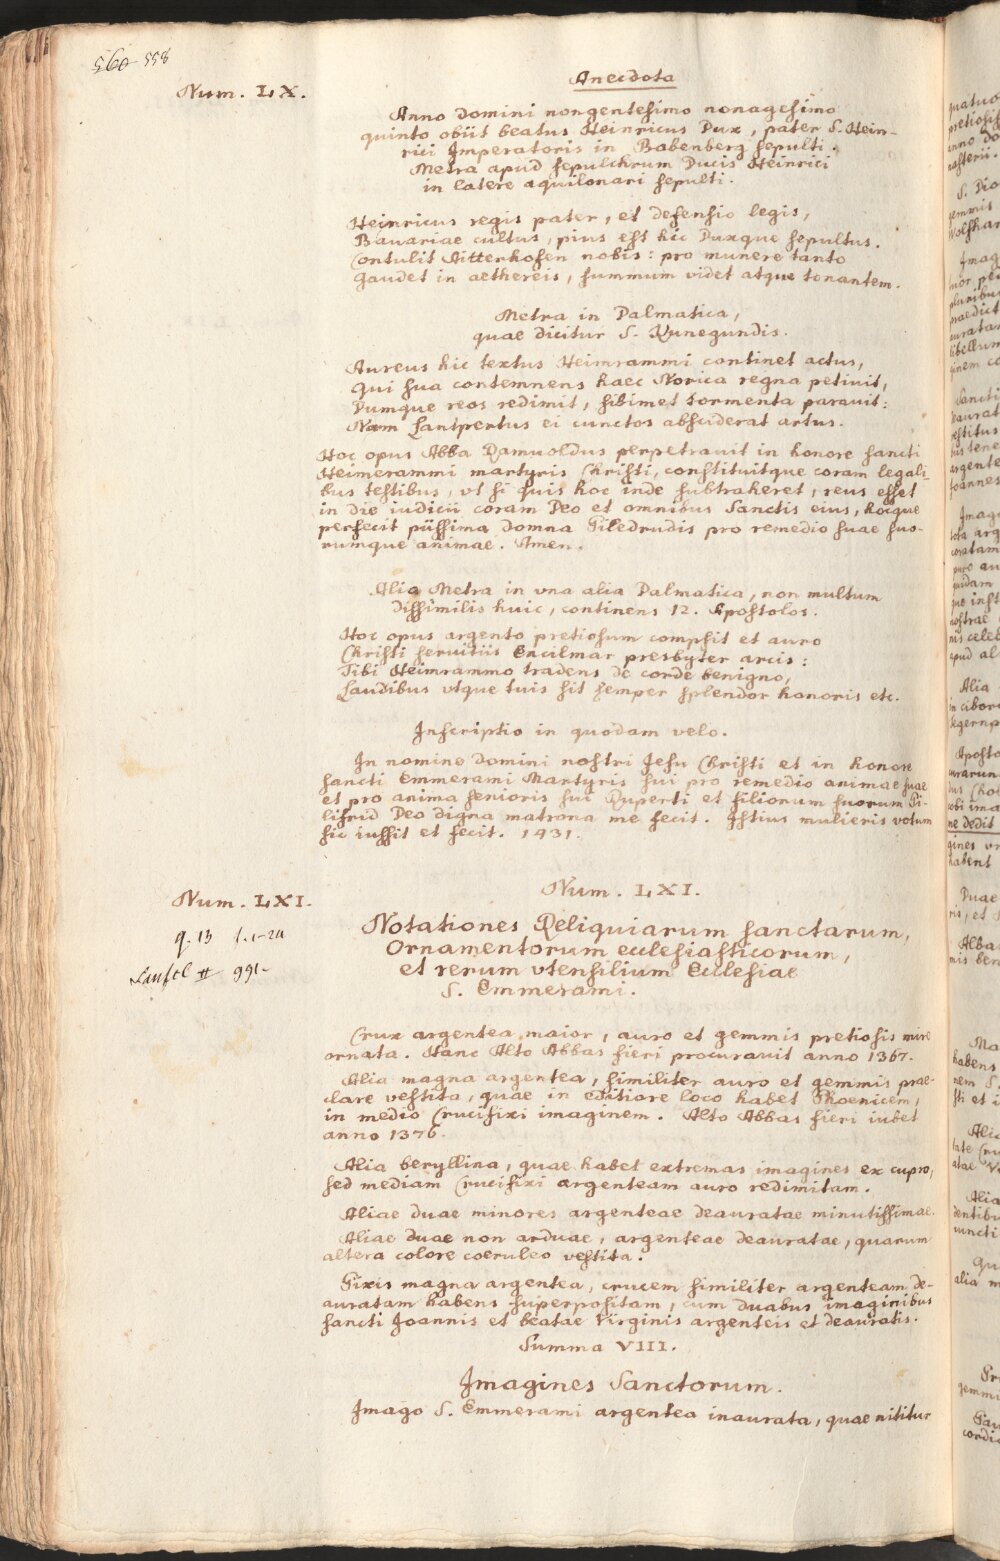 560 558
Anecdota
Num. LX.
Anno Domini nongentesimo nonagesimo
quinto obiit beatus Heinricus Dux, pater S. Hein-
rici Imperatoris in Babenberg sepulti.
Metra apud sepulchrum Ducis Heinrici
in latere aquilonari sepulti.
Heinricus regis pater, et defensio legis,
Bauariae cultus, pius est hic Duxque sepultus.
Contulit Aitterhofen nobis: pro munere tanto
Gaudet in aethereis, summum videt atque tonantem.
Metra in Dalmatica,
quae dicitur S. Kunegundis.
Aureus hic textus Heimrammi continet actus,
Qui sua contemnens haec Norica regna petiuit,
Dumque reos redimit, sibimet tormenta parauit:
Nam Lantpertus ei cunctos absciderat artus.
Hoc opus Abba Ramuoldus perpetrauit in honore sancti
Heimerammi martyris Christi, constituitque coram legali-
bus testibus, vt si quis hoc inde subtraheret, reus esset
in die iudicii coram Deo et omnibus Sanctis eius, hocque
perfecit piissima domna Giledrudis pro remedio suae suo-
rumque animae. Amen.
Alia Metra in vna alia Dalmatica, non multum
dissimilis huic, continens 12. Apostolos.
Hoc opus argento pretiosum compsit et auro
Christi seruitiis Encilmar presbyter arcis:
Tibi Heimrammo tradens de corde benigno,
Laudibus vtque tuis sit semper splendor honoris etc.
Inscriptio in quodam velo.
In nomine Domini nostri Jesu Christi et in honore
sancti Emmerami Martyris sui pro remedio animae suae
et pro anima senioris sui Ruperti et filiorum suorum Gi-
lifrid Deo digna matrona me fecit. Istius mulieris votum
sic iussit et fecit. 1431.
Num. LXI.
Num. LXI.
q. 13 f. 1-20
II 991-
Notationes Reliquiarum sanctarum,
Ornamentorum ecclesiasticorum,
et rerum vtensilium Ecclesiae
S. Emmerami.
Crux argentea maior, auro et gemmis pretiosis mire
ornata. Hanc Alto Abbas fieri procurauit anno 1367.
Alia magna argentea, similiter auro et gemmis prae-
clare vestita, quae in editiore loco habet Phoenicem,
in medio Crucifixi imaginem. Alto Abbas fieri iubet
anno 1376.
Alia beryllina, quae habet extremas imagines ex cupro,
sed mediam Crucifixi argenteam auro redimitam.
Aliae duae minores argenteae deauratae minutissimae.
Aliae duae non arduae, argenteae deauratae, quarum
altera colore coeruleo vestita.
Pixis magna argentea, crucem similiter argenteam de-
auratam habens superpositam, cum duabus imaginibus
sancti Joannis et beatae Virginis argenteis et deauratis.
Summa VIII.
Imagines Sanctorum.
Imago S. Emmerami argentea inaurata, quae nititur